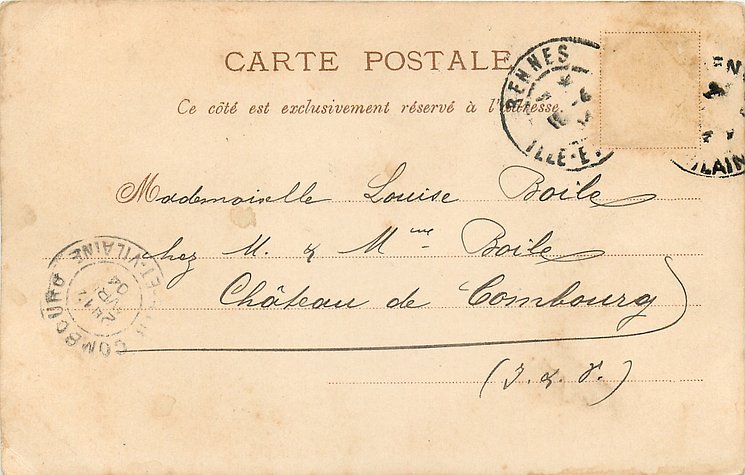 CARTE POSTALE
Ce côté est exclusivement réservé à l'adresse
RENNES
ILLE-E
VILAINE
Mademoiselle Louise Boile
chez M. & Mme Boile
Château de Combourg
(I. & V.)
COMBOURG
ET-VILAINE
04